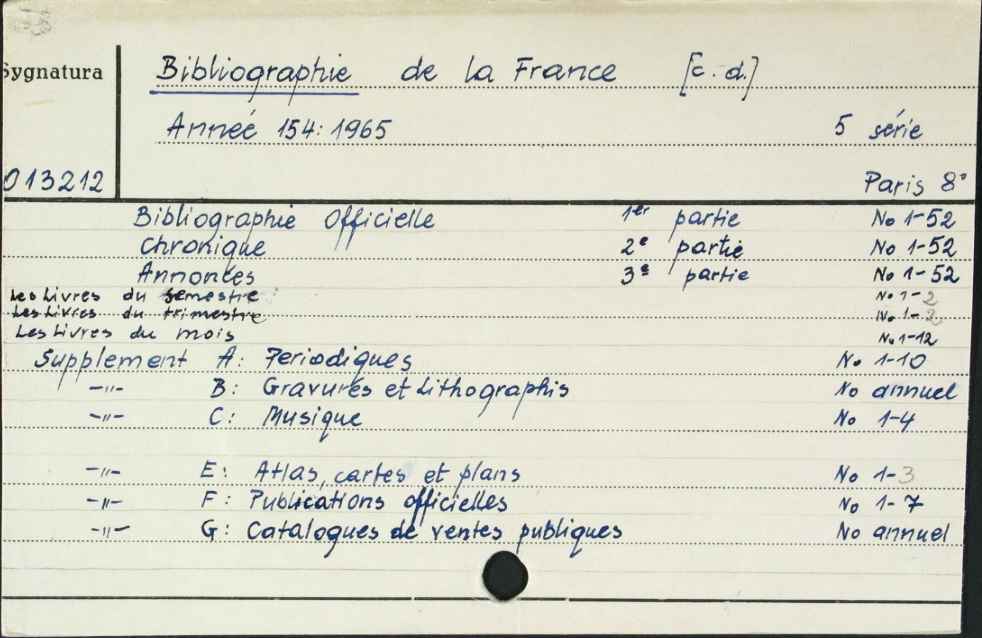 Sygnatura Bibliographie de la France [c.d.]
Anneé 154: 1965 5 série
013212 Paris 8°
Bibliographie Officielle 1er partie No 1-52
Chronique 2e partie No 1-52
Annonces 3e partie No 1-52
Les Livres du semestre No 1-2
Les Livres du trimestre No 1-2
Les Livres du mois No 1-12
Supplement A: Periodiques No 1-10
-"- B: Gravures et Lithographis No annuel
-"- C: Musique No 1-4
-"- E: Atlas, cartes et plans No 1-3
-"- F: Publications officielles No 1-7
-"- G: Catalogues de ventes publiques No annuel